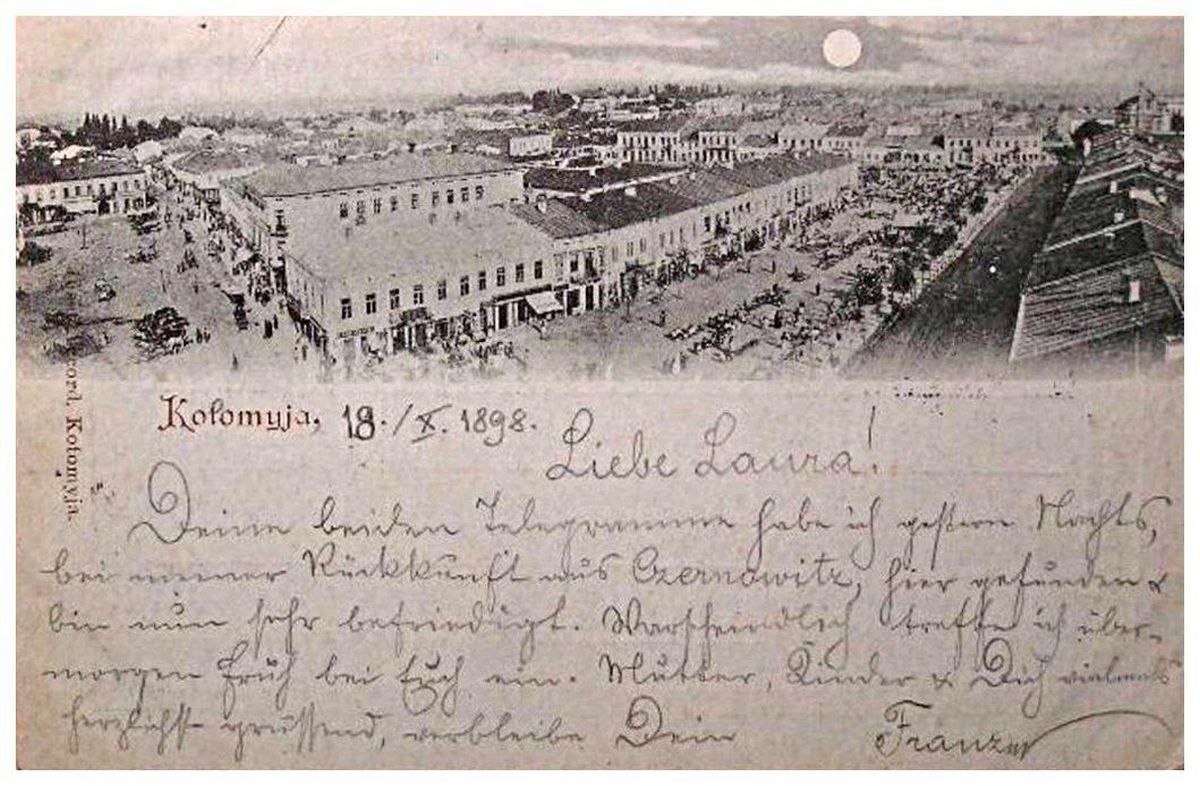 Kołomyja, 18./X. 1898.
Liebe Laura!
Deine beiden Telegramme habe ich gestern Nachts,
bei meiner Rückkunft aus Czernowitz, hier gefunden &
bin nun sehr befriedigt. Warscheindlich treffe ich über-
morgen früh bei Euch ein. Mutter, Kinder & Dich vielmals
herzlichst grüssend, verbleibe Dein Franz
Kołomyja.